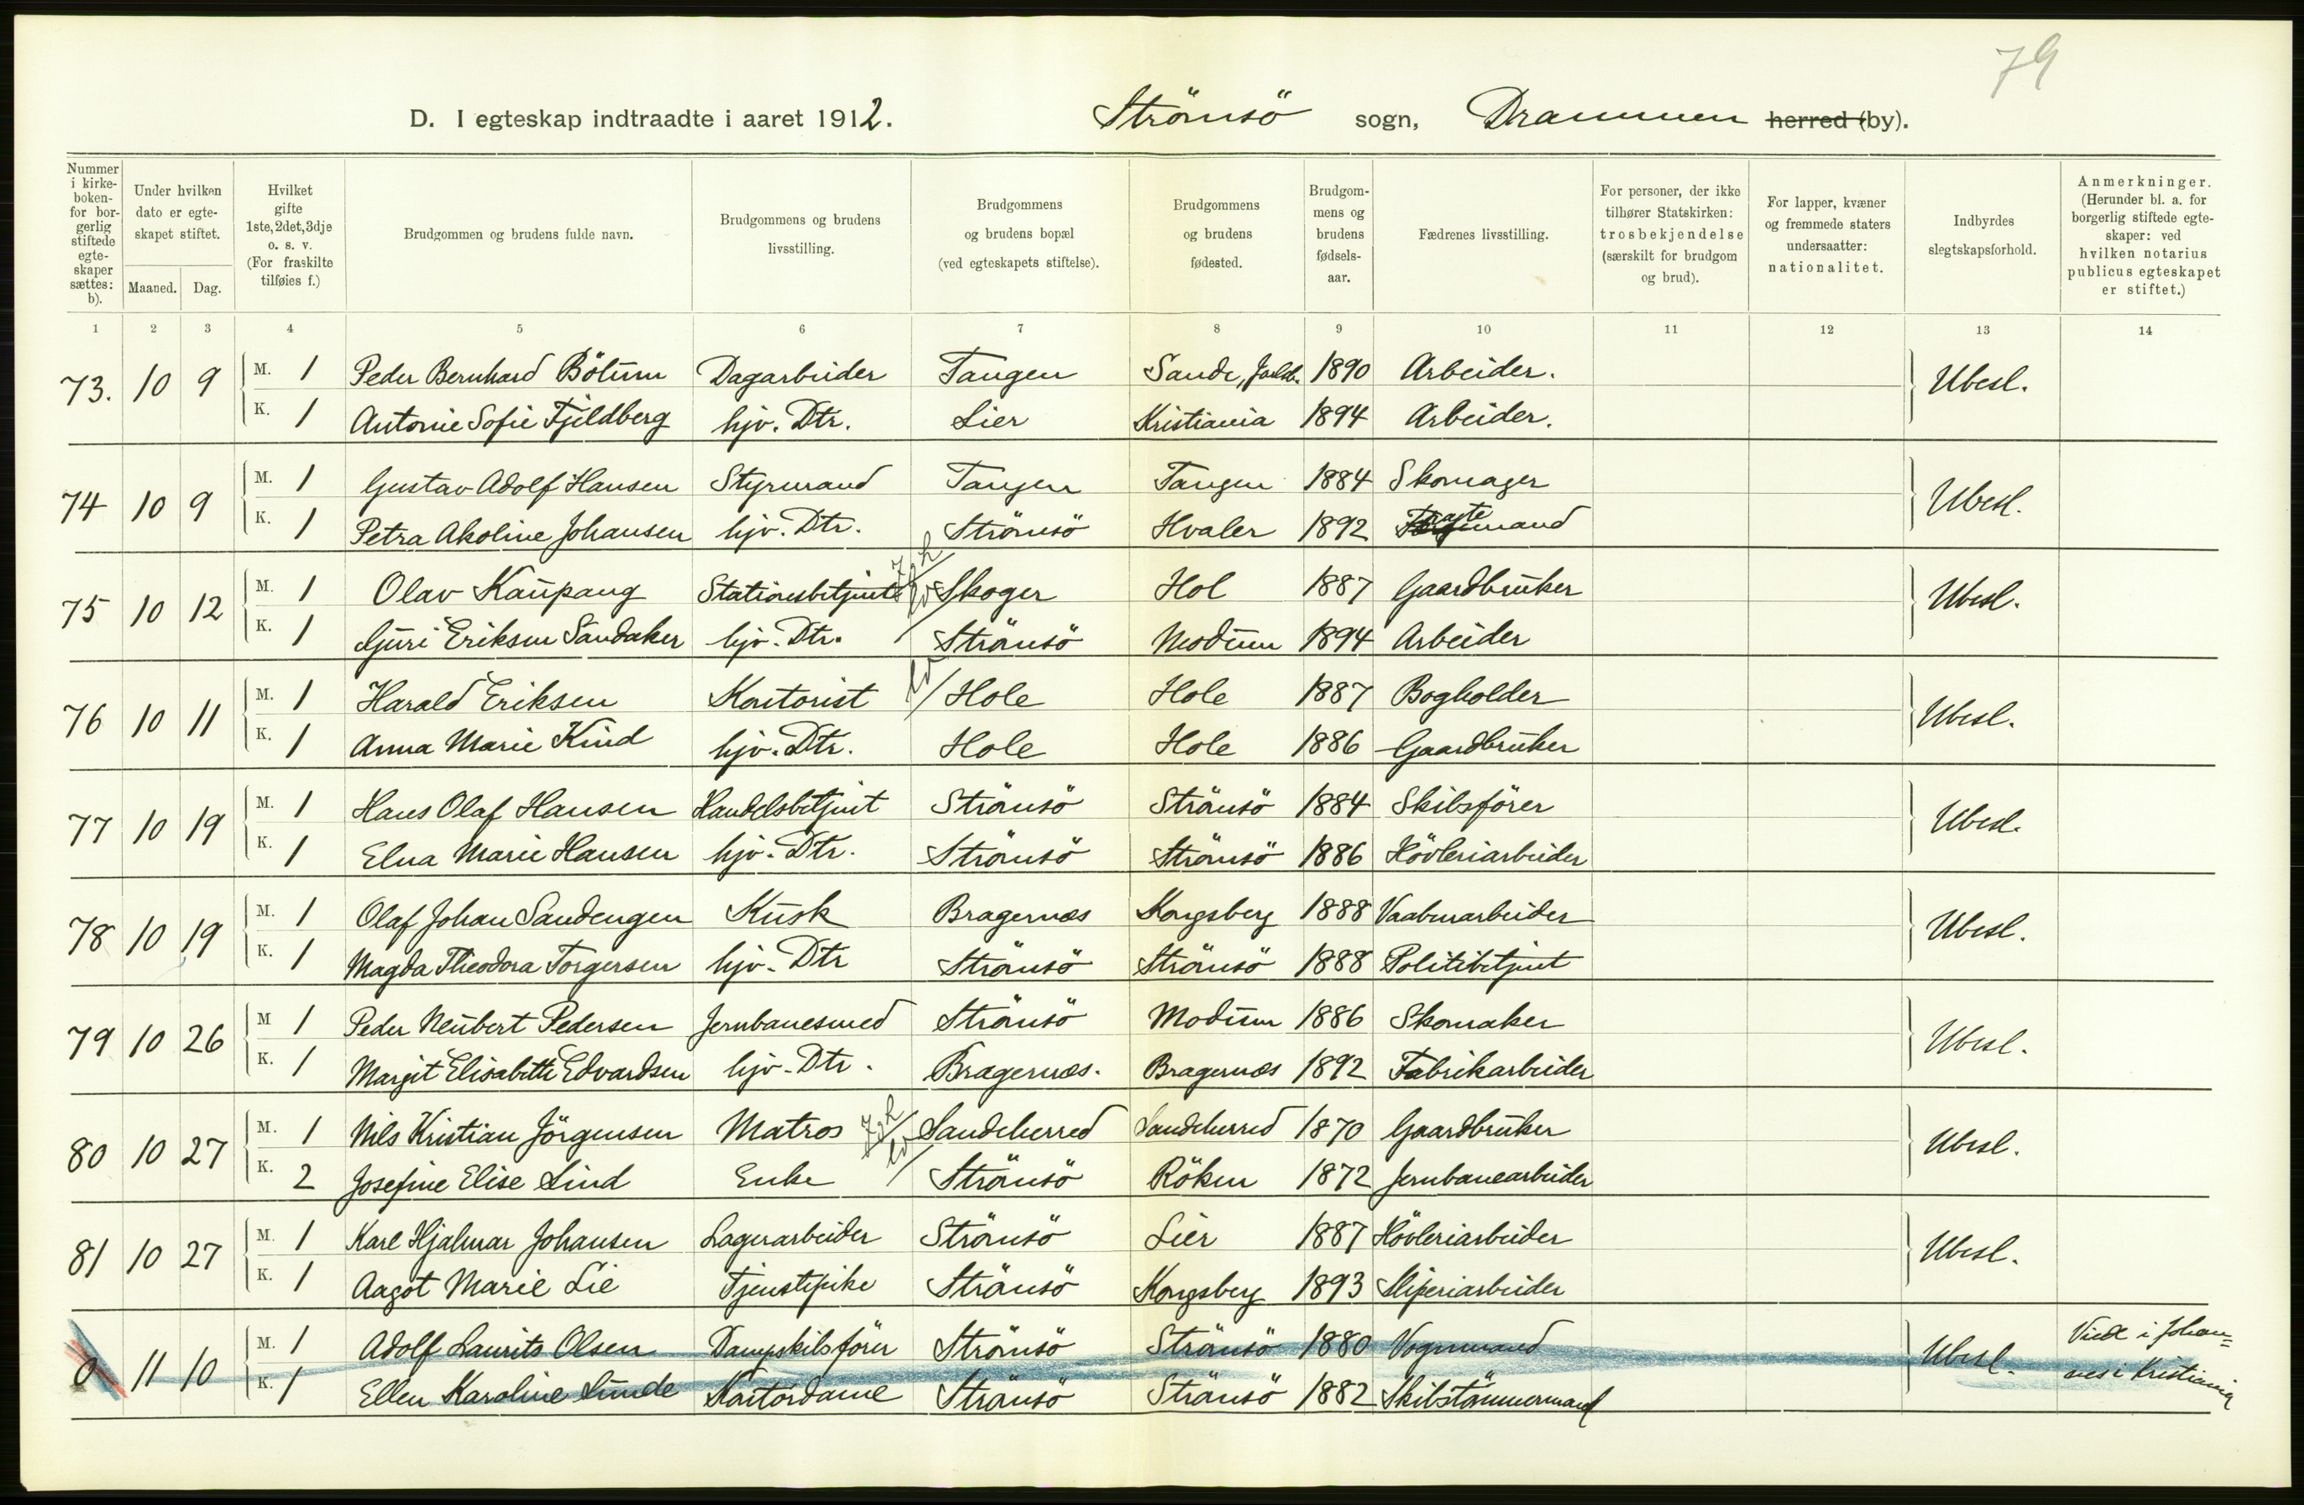 79
D. I egteskap indtraadte i aaret 1912. Strömsö sogn, Drammen herred (by).
Nummer i kirke-boken- for bor-gerlig stiftede egte-skaper sættes: b).
Under hvilken dato er egte-skapet stiftet.
Maaned. Dag.
Hvilket gifte 1ste, 2det, 3dje o. s. v. (For fraskilte tilføies f.)
Brudgommen og brudens fulde navn.
Brudgommens og brudens livsstilling.
Brudgommens og brudens bopæl (ved egteskapets stiftelse).
Brudgommens og brudens fødested.
Brudgom-mens og brudens fødsels-aar.
Fædrenes livsstilling.
For personer, der ikke tilhører Statskirken: trosbekjendelse (særskilt for brudgom og brud).
For lapper, kvæner og fremmede staters undersaatter: nationalitet.
Indbyrdes slegtskapsforhold.
Anmerkninger. (Herunder bl. a. for borgerlig stiftede egte-skaper: ved hvilken notarius publicus egteskapet er stiftet.)
1 2 3 4 5 6 7 8 9 10 11 12 13 14
73. 10 9 M. 1 Peder Bernhard Bölum Dagarbeider Tangen Sande, Jarlsb. 1890 Arbeider. Ubesl.
K. 1 Antonie Sofie Fjeldberg hjv. Dtr. Lier Kristiania 1894 Arbeider.
74 10 9 M. 1 Gustav Adolf Hansen Styrmand Tangen Tangen 1884 Skomager Ubesl.
K. 1 Petra Akoline Johansen hjv. Dtr. Strömsö Hvaler 1892 mand
75 10 12 M. 1 Olav Kaupang Stationsbetjent Skoger Hol 1887 Gaardbruker Ubesl.
K. 1 Guri Eriksen Sandaker hjv. Dtr. Strömsö Modum 1894 Arbeider
76 10 11 M. 1 Harald Eriksen Kontorist Hole Hole 1887 Bogholder Ubesl.
K. 1 Anna Marie Kind hjv. Dtr. Hole Hole 1886 Gaardbruker
77 10 19 M. 1 Hans Olaf Hansen Handelsbetjent Strömsö Strömsö 1884 Skibsförer Ubesl.
K. 1 Elna Marie Hansen hjv. Dtr. Strömsö Strömsö 1886 Hövleriarbeider
78 10 19 M. 1 Olaf Johan Sandengen Kusk Bragernæs Kongsberg 1888 Vaabenarbeider Ubesl.
K. 1 Magda Theodora Torgersen hjv. Dtr Strömsö Strömsö 1888 Politibetjent
79 10 26 M 1 Peder Neubert Pedersen Jernbanesmed Strömsö Modum 1886 Skomaker Ubesl.
K. 1 Margit Elisabeth Edvardsen hjv. Dtr. Bragernæs. Bragernæs 1892 Fabrikarbeider
80 10 27 M. 1 Nils Kristian Jörgensen Matros Sandeherred Sandeherred 1870 Gaardbruker Ubesl.
K. 2 Josefine Elise Lind Enke Strömsö Röken 1872 Jernbanearbeider
81 10 27 M. 1 Karl Hjalmar Johansen Lagerarbeider Strömsö Lier 1887 Hövleriarbeider Ubesl.
K. 1 Aagot Marie Lie Tjenstepike Strömsö Kongsberg 1893 Sliperiarbeider
0 11 10 M. 1 Adolf Laurits Olsen Dampskibsförer Strömsö Strömsö 1880 Vognmand Ubesl. Viede i Johan=
K. 1 Ellen Karoline Lunde Kontordame Strömsö Strömsö 1882 Skibstömmermand nes i Kristiania